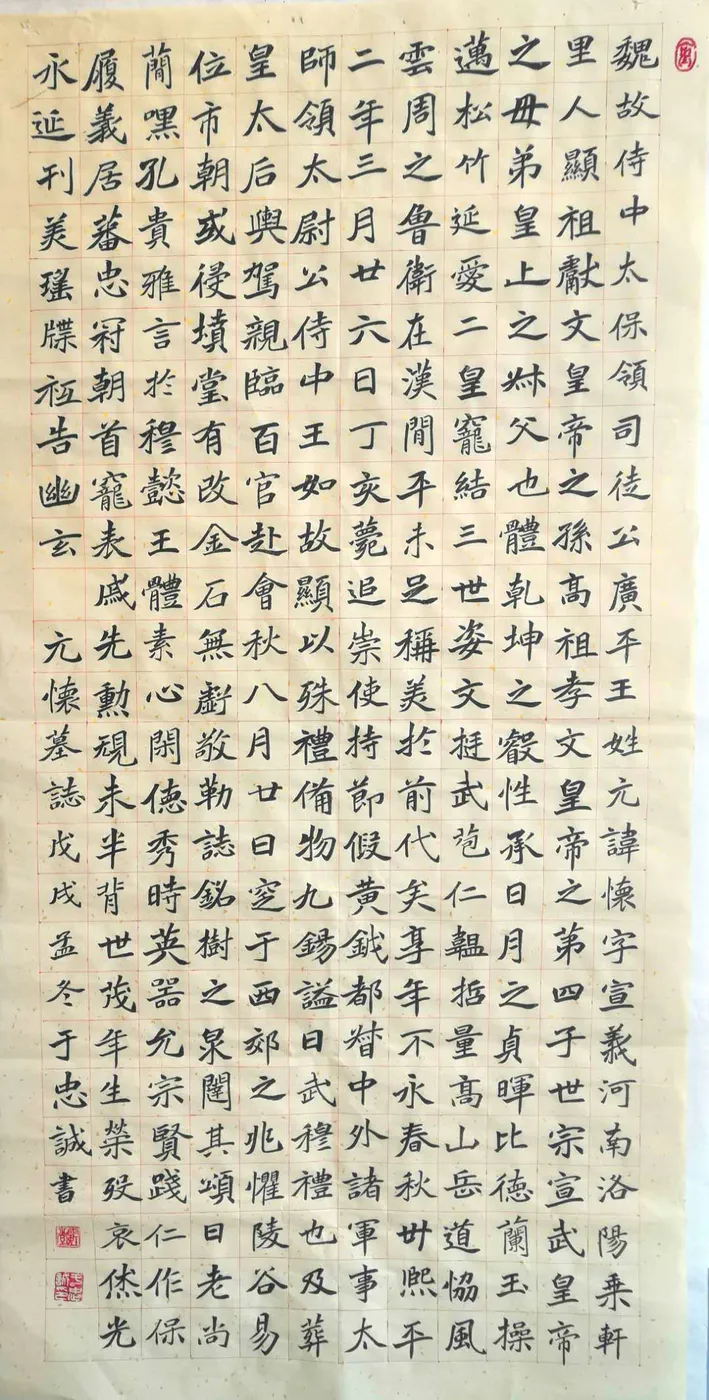 魏故侍中太保領司徒公廣平王姓元諱懷字宣義河南洛陽乗軒
里人顯祖獻文皇帝之孫高祖孝文皇帝之第四子世宗宣武皇帝
之毋弟皇上之叔父也體乾坤之叡性承日月之貞暉比德蘭玉操
邁松竹延愛二皇寵結三世姿文挺武苞仁韞哲量高山岳道恊風
雲周之魯衛在漢間平未足稱美於前代矣享年不永春秋卅熙平
二年三月廿六日丁亥薨追崇使持節假黃鉞都督中外諸軍事太
師領太尉公侍中王如故顯以殊禮備物九錫謚曰武穆禮也及葬
皇太后輿駕親臨百官赴會秋八月廿日窆于西郊之兆懼陵谷易
位市朝或侵墳堂有改金石無虧敬勒誌銘樹之泉闥其頌曰老尚
簡嘿孔貴雅言於穆懿王體素心閑德秀時英器允宗賢踐仁作保
履義居蕃忠冠朝首寵表戚先勲規未半背世茂年生榮歿哀休光
永延刊美瑤牒祗告幽玄 元懷墓誌戊戌孟冬于忠誠書